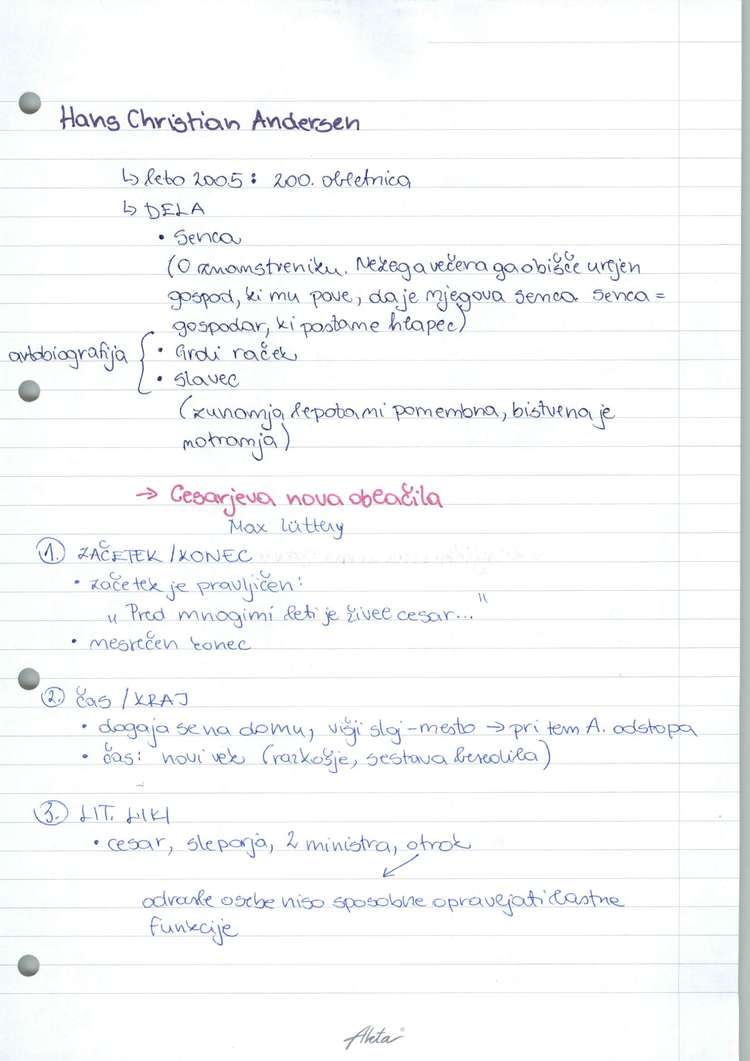 Hans Christian Andersen
↳ leto 2005: 200. obletnica
↳ DELA
• Senca
(O znanstveniku. Nekega večera ga obišče urejen
gospod, ki mu pove, da je njegova senca. Senca =
gospodar, ki postane hlapec)
avtobiografija { • Grdi raček
• Slavec
(zunanja lepota ni pomembna, bistvena je
notranja)
→ Cesarjeva nova oblačila
Max Lüthy
1. ZAČETEK / KONEC
• začetek je pravljičen:
„Pred mnogimi leti je živel cesar..."
• nesrečen konec
2. čas / KRAJ
• dogaja se na domu, višji sloj-mesto → pri tem A. odstopa
• čas: novi vek (razkošje, sestava besedila)
3. LIT. LIKI
• cesar, sleparja, 2 ministra, otrok
odrasle osebe niso sposobne opravljati lastne
funkcije
Akta